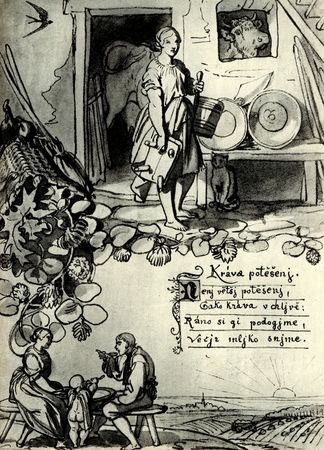 Kráva potěšenj.
Nenj většj potěšenj,
Gako kráva v chljvě:
Ráno si gi podogjme,
Večjr mljko snjme.